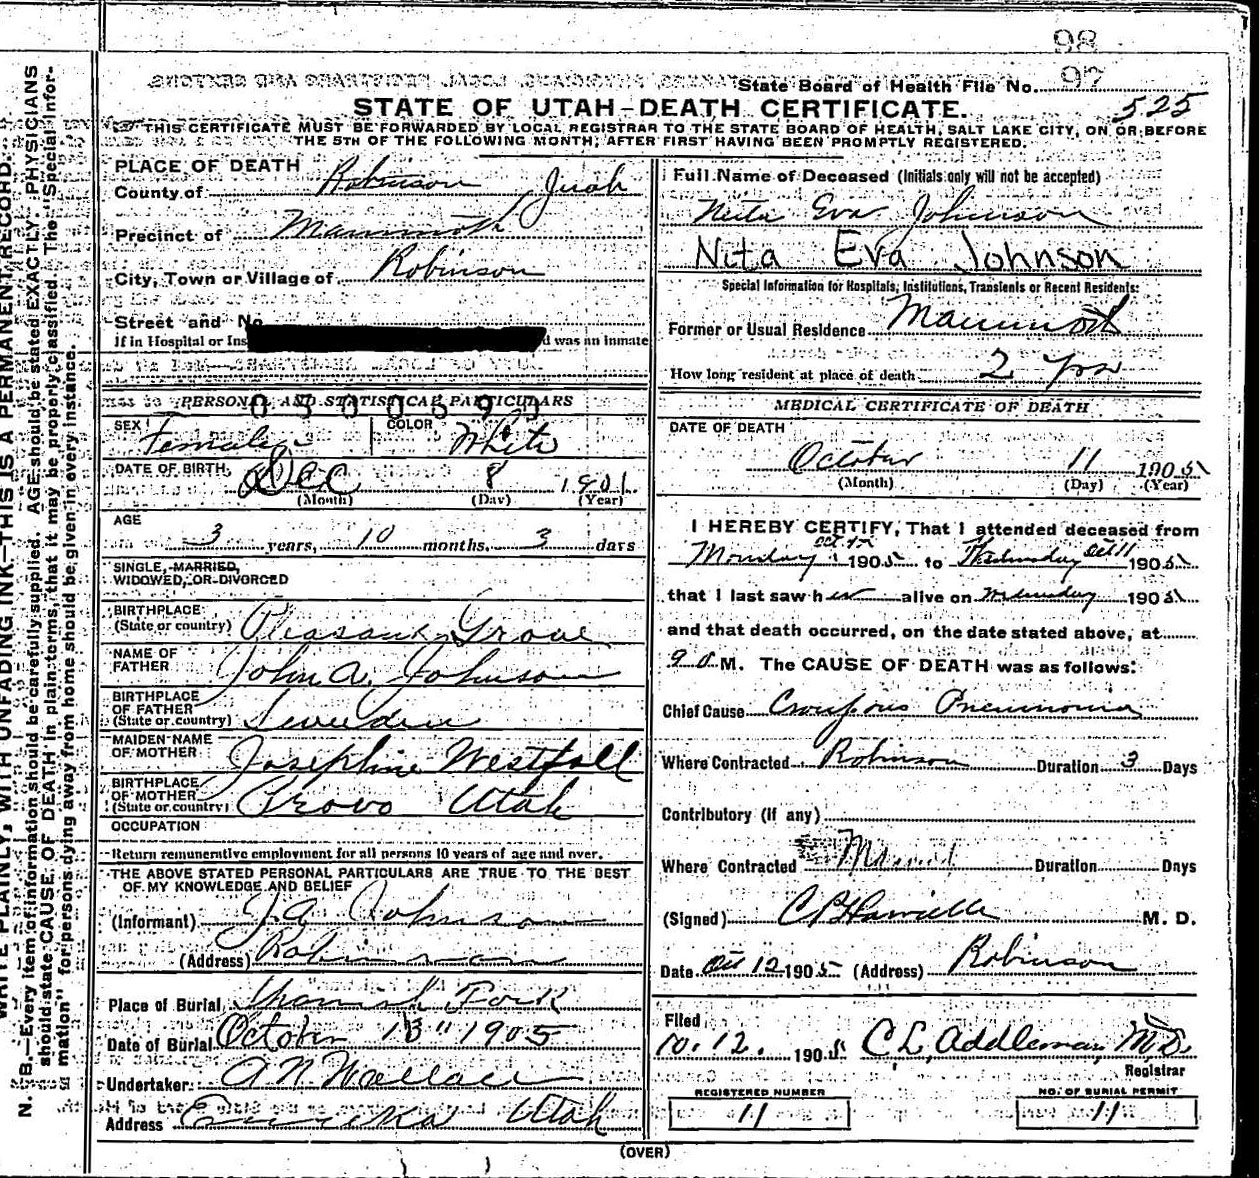 98
97
State Board of Health File No.
525
STATE OF UTAH-DEATH CERTIFICATE.
THIS CERTIFICATE MUST BE FORWARDED BY LOCAL REGISTRAR TO THE STATE BOARD OF HEALTH, SALT LAKE CITY, ON OR BEFORE
THE 5TH OF THE FOLLOWING MONTH; AFTER FIRST HAVING BEEN PROMPTLY REGISTERED.
PLACE OF DEATH
County of Robinson Juab
Precinct of Mammoth
City, Town or Village of Robinson
Street and No
If in Hospital or Ins d was an inmate
PERSONAL AND STATISTICAL PARTICULARS
0500690
SEX Female COLOR White
DATE OF BIRTH, Dec 8 1901
(Month) (Day) (Year)
AGE
3 years, 10 months, 3 days
SINGLE, MARRIED,
WIDOWED, OR DIVORCED
BIRTHPLACE
(State or country) Pleasant Grove
NAME OF
FATHER John A. Johnson
BIRTHPLACE
OF FATHER
(State or country) Sweeden
MAIDEN NAME
OF MOTHER Josephine Westfall
BIRTHPLACE
OF MOTHER
(State or country) Provo Utah
OCCUPATION
Return remunerative employment for all persons 10 years of age and over.
THE ABOVE STATED PERSONAL PARTICULARS ARE TRUE TO THE BEST
OF MY KNOWLEDGE AND BELIEF
(Informant) J. A. Johnson
(Address) Robinson
Place of Burial Spanish Fork
Date of Burial October 13" 1905
Undertaker A N Wallace
Address Eureka Utah
Full Name of Deceased (Initials only will not be accepted)
Neita Eva Johnson
Nita Eva Johnson
Special Information for Hospitals, Institutions, Transients or Recent Residents:
Former or Usual Residence Mammoth
How long resident at place of death 2 yrs
MEDICAL CERTIFICATE OF DEATH
DATE OF DEATH
October 11 1905
(Month) (Day) (Year)
I HEREBY CERTIFY, That I attended deceased from
Monday Oct 1905 to Wednesday Oct 11 1905
that I last saw her alive on 1905
and that death occurred, on the date stated above, at
9 M. The CAUSE OF DEATH was as follows:
Chief Cause Croupous Pneumonia
Where Contracted Robinson Duration 3 Days
Contributory (if any)
Where Contracted Duration Days
(Signed) M. D.
Date Oct 12 1905 (Address) Robinson
Filed
10.12. 1905 C L Addleman, M.D.
Registrar
REGISTERED NUMBER
11
NO. OF BURIAL PERMIT
11
(OVER)
WRITE PLAINLY, WITH UNFADING INK—THIS IS A PERMANENT RECORD.
N. B.—Every item of information should be carefully supplied. AGE should be stated EXACTLY. PHYSICIANS
should state CAUSE OF DEATH in plain terms, that it may be properly classified. The "Special Infor-
mation" for persons dying away from home should be given in every instance.